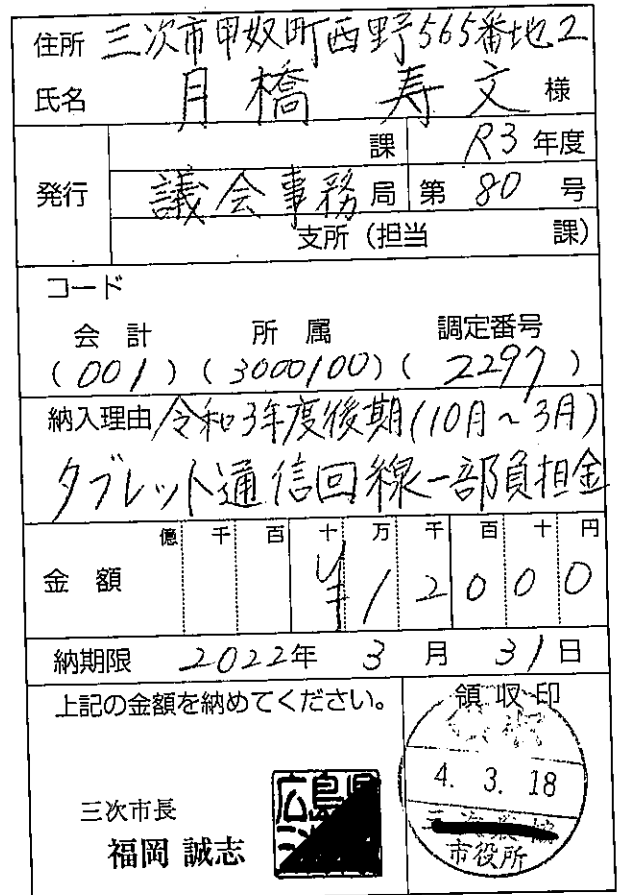 住所 三次市甲奴町西野565番地2
氏名 月橋 寿文 様
課 R3 年度
発行 議会事務局 第 80 号
支所 (担当 課)
コード
会計 所属 調定番号
(001) (3000100) (2297)
納入理由 令和3年度後期(10月~3月)
タブレット通信回線一部負担金
億 千 百 十 万 千 百 十 円
金額 ¥12000
納期限 2022年 3月 31日
上記の金額を納めてください。 領収印
4. 3. 18
三次市長
福岡 誠志
広島県
市役所